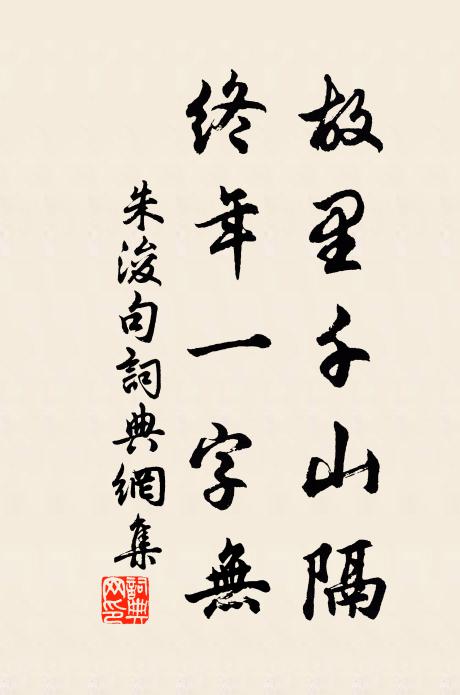 故里千山隔
終年一字無
朱浚句詞典網集
詞典网印